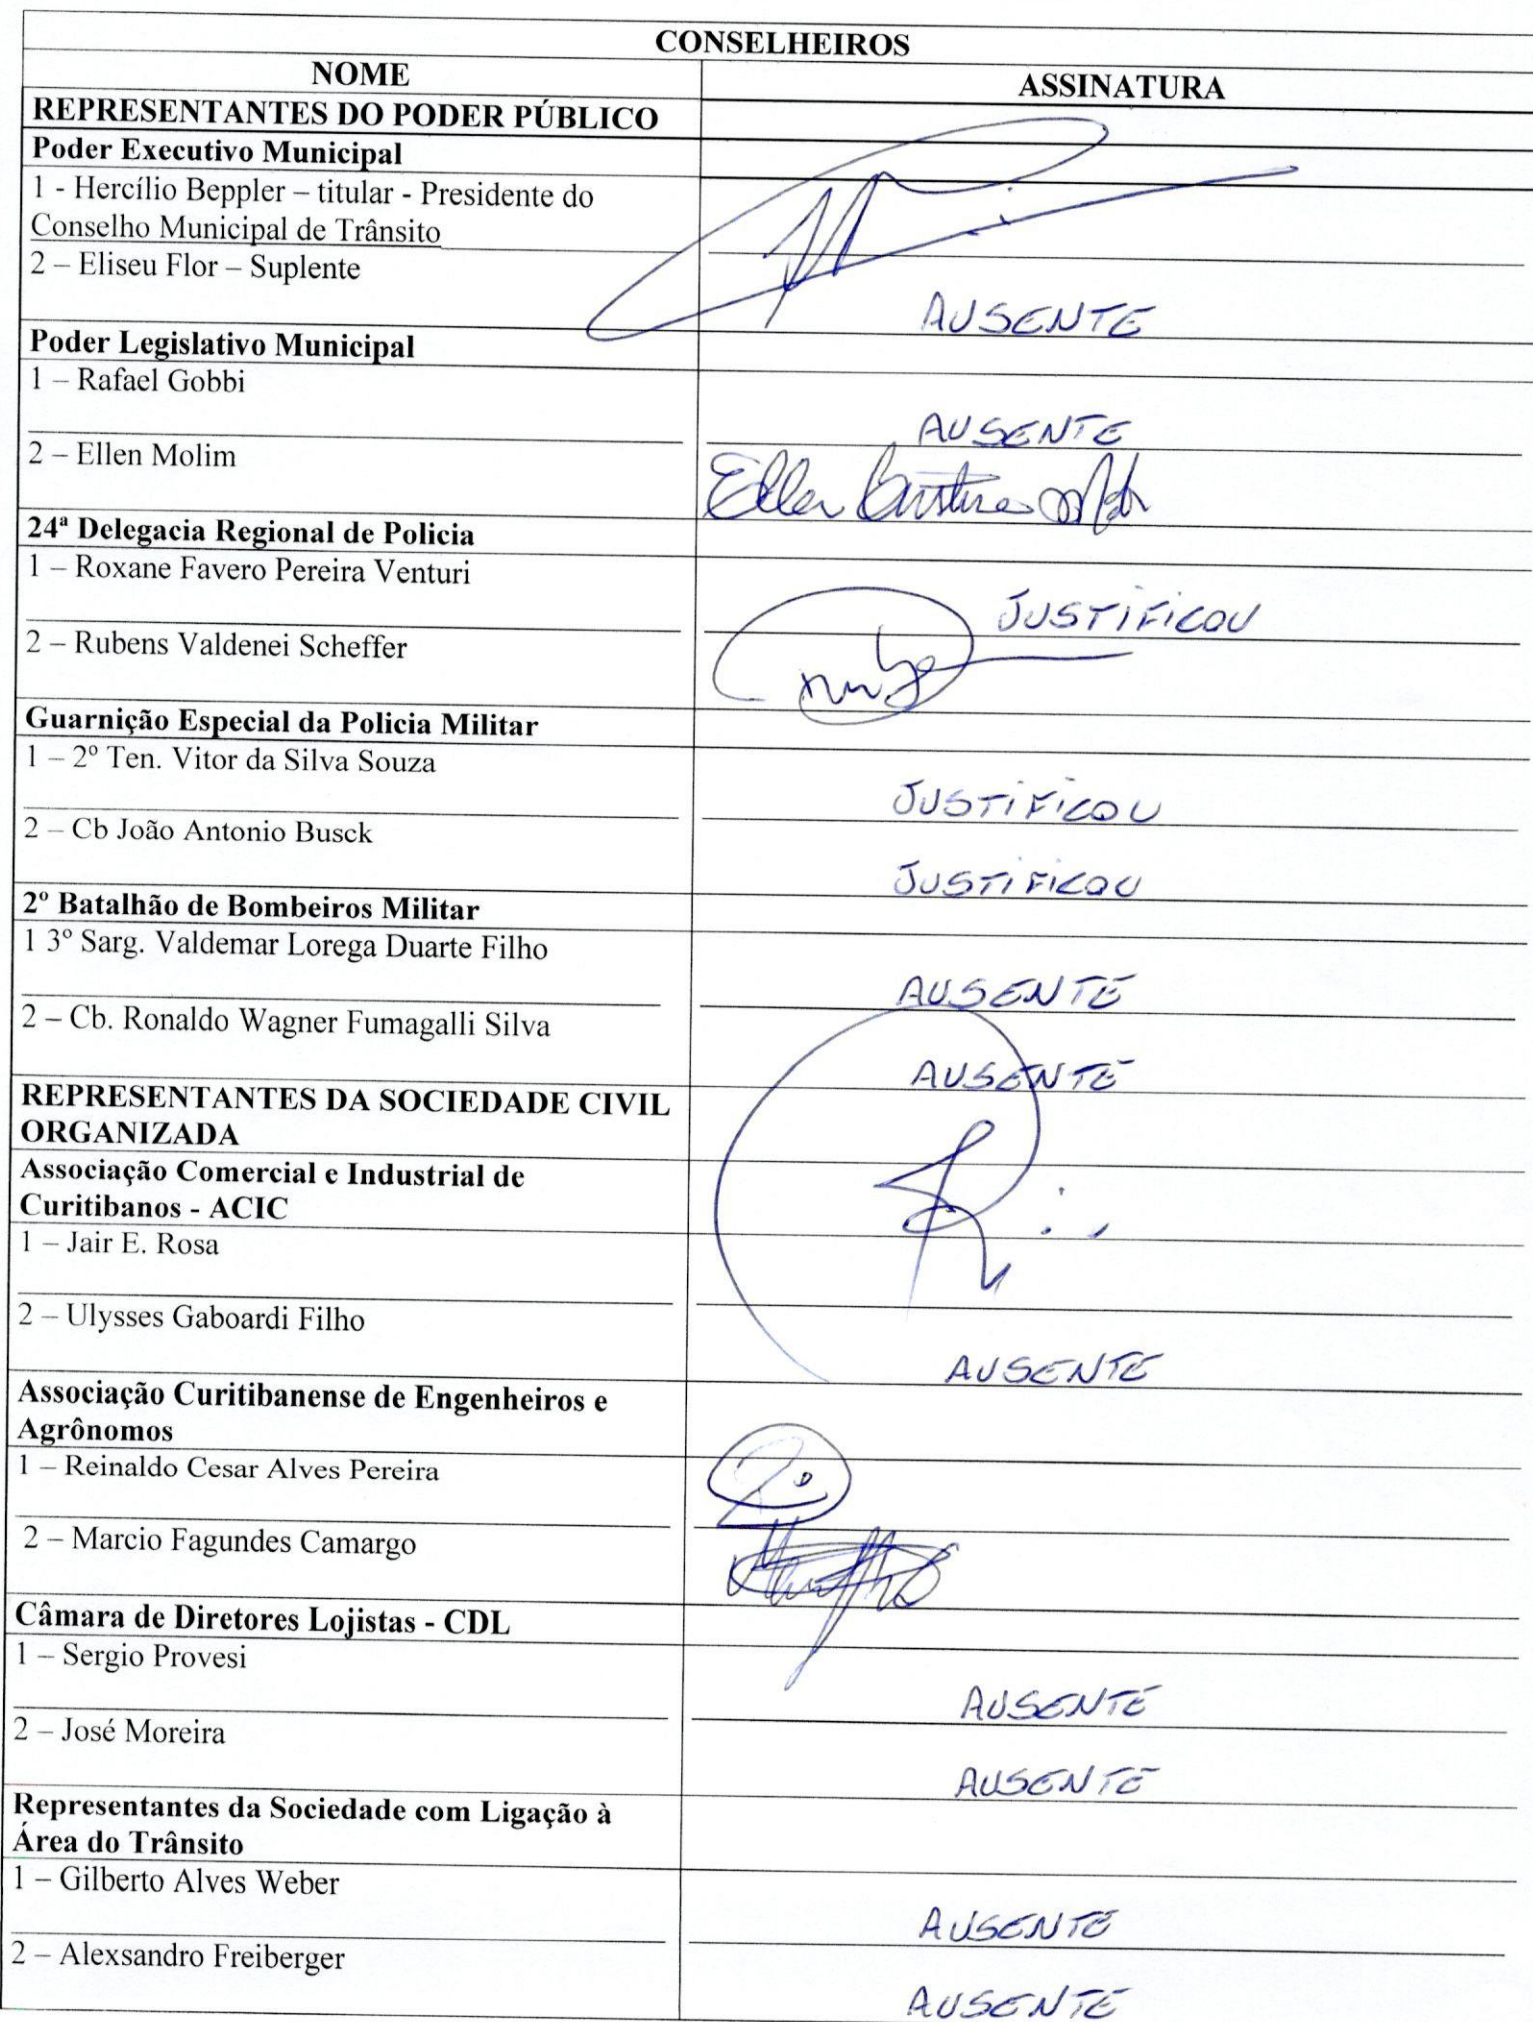 CONSELHEIROS
NOME
ASSINATURA
REPRESENTANTES DO PODER PÚBLICO
Poder Executivo Municipal
1 - Hercílio Beppler – titular - Presidente do
Conselho Municipal de Trânsito
2 – Eliseu Flor – Suplente
AUSENTE
Poder Legislativo Municipal
1 – Rafael Gobbi
AUSENTE
2 – Ellen Molim
Ellen
24ª Delegacia Regional de Policia
1 – Roxane Favero Pereira Venturi
JUSTIFICOU
2 – Rubens Valdenei Scheffer
Guarnição Especial da Policia Militar
1 – 2º Ten. Vitor da Silva Souza
JUSTIFICOU
2 – Cb João Antonio Busck
JUSTIFICOU
2º Batalhão de Bombeiros Militar
1 3º Sarg. Valdemar Lorega Duarte Filho
AUSENTE
2 – Cb. Ronaldo Wagner Fumagalli Silva
AUSENTE
REPRESENTANTES DA SOCIEDADE CIVIL
ORGANIZADA
Associação Comercial e Industrial de
Curitibanos - ACIC
1 – Jair E. Rosa
2 – Ulysses Gaboardi Filho
AUSENTE
Associação Curitibanense de Engenheiros e
Agrônomos
1 – Reinaldo Cesar Alves Pereira
2 – Marcio Fagundes Camargo
Câmara de Diretores Lojistas - CDL
1 – Sergio Provesi
AUSENTE
2 – José Moreira
AUSENTE
Representantes da Sociedade com Ligação à
Área do Trânsito
1 – Gilberto Alves Weber
AUSENTE
2 – Alexsandro Freiberger
AUSENTE